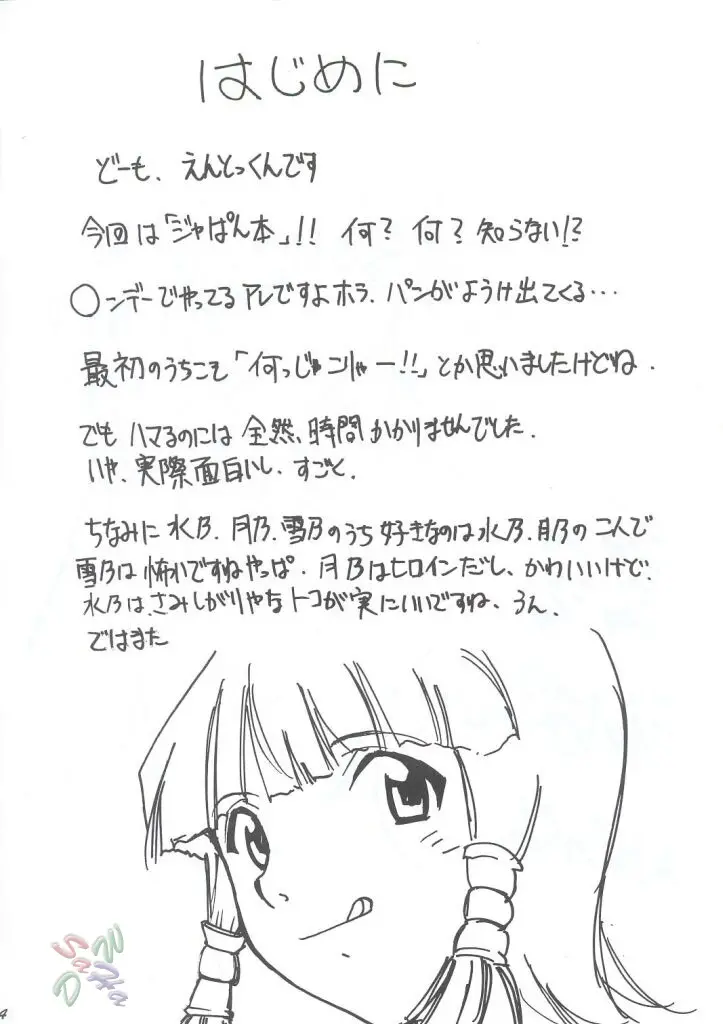 はじめに
どーも、えんとっくんです
今回は「ジャぱん本」!! 何? 何? 知らない!?
○ンデーでやってるアレですよホラ、パンがようけ出てくる…
最初のうちこそ「何っじゃこりゃー!!」とか思いましたけどね.
でもハマるのには全然、時間かかりませんでした.
いや、実際面白いし、すごと.
ちなみに水乃、月乃、雪乃のうち好きなのは水乃、月乃の二人で
雪乃は怖いですねやっぱ. 月乃はヒロインだし、かわいいけど、
水乃は、さみしがりやなトコが実にいいですね、うん.
ではまた
4